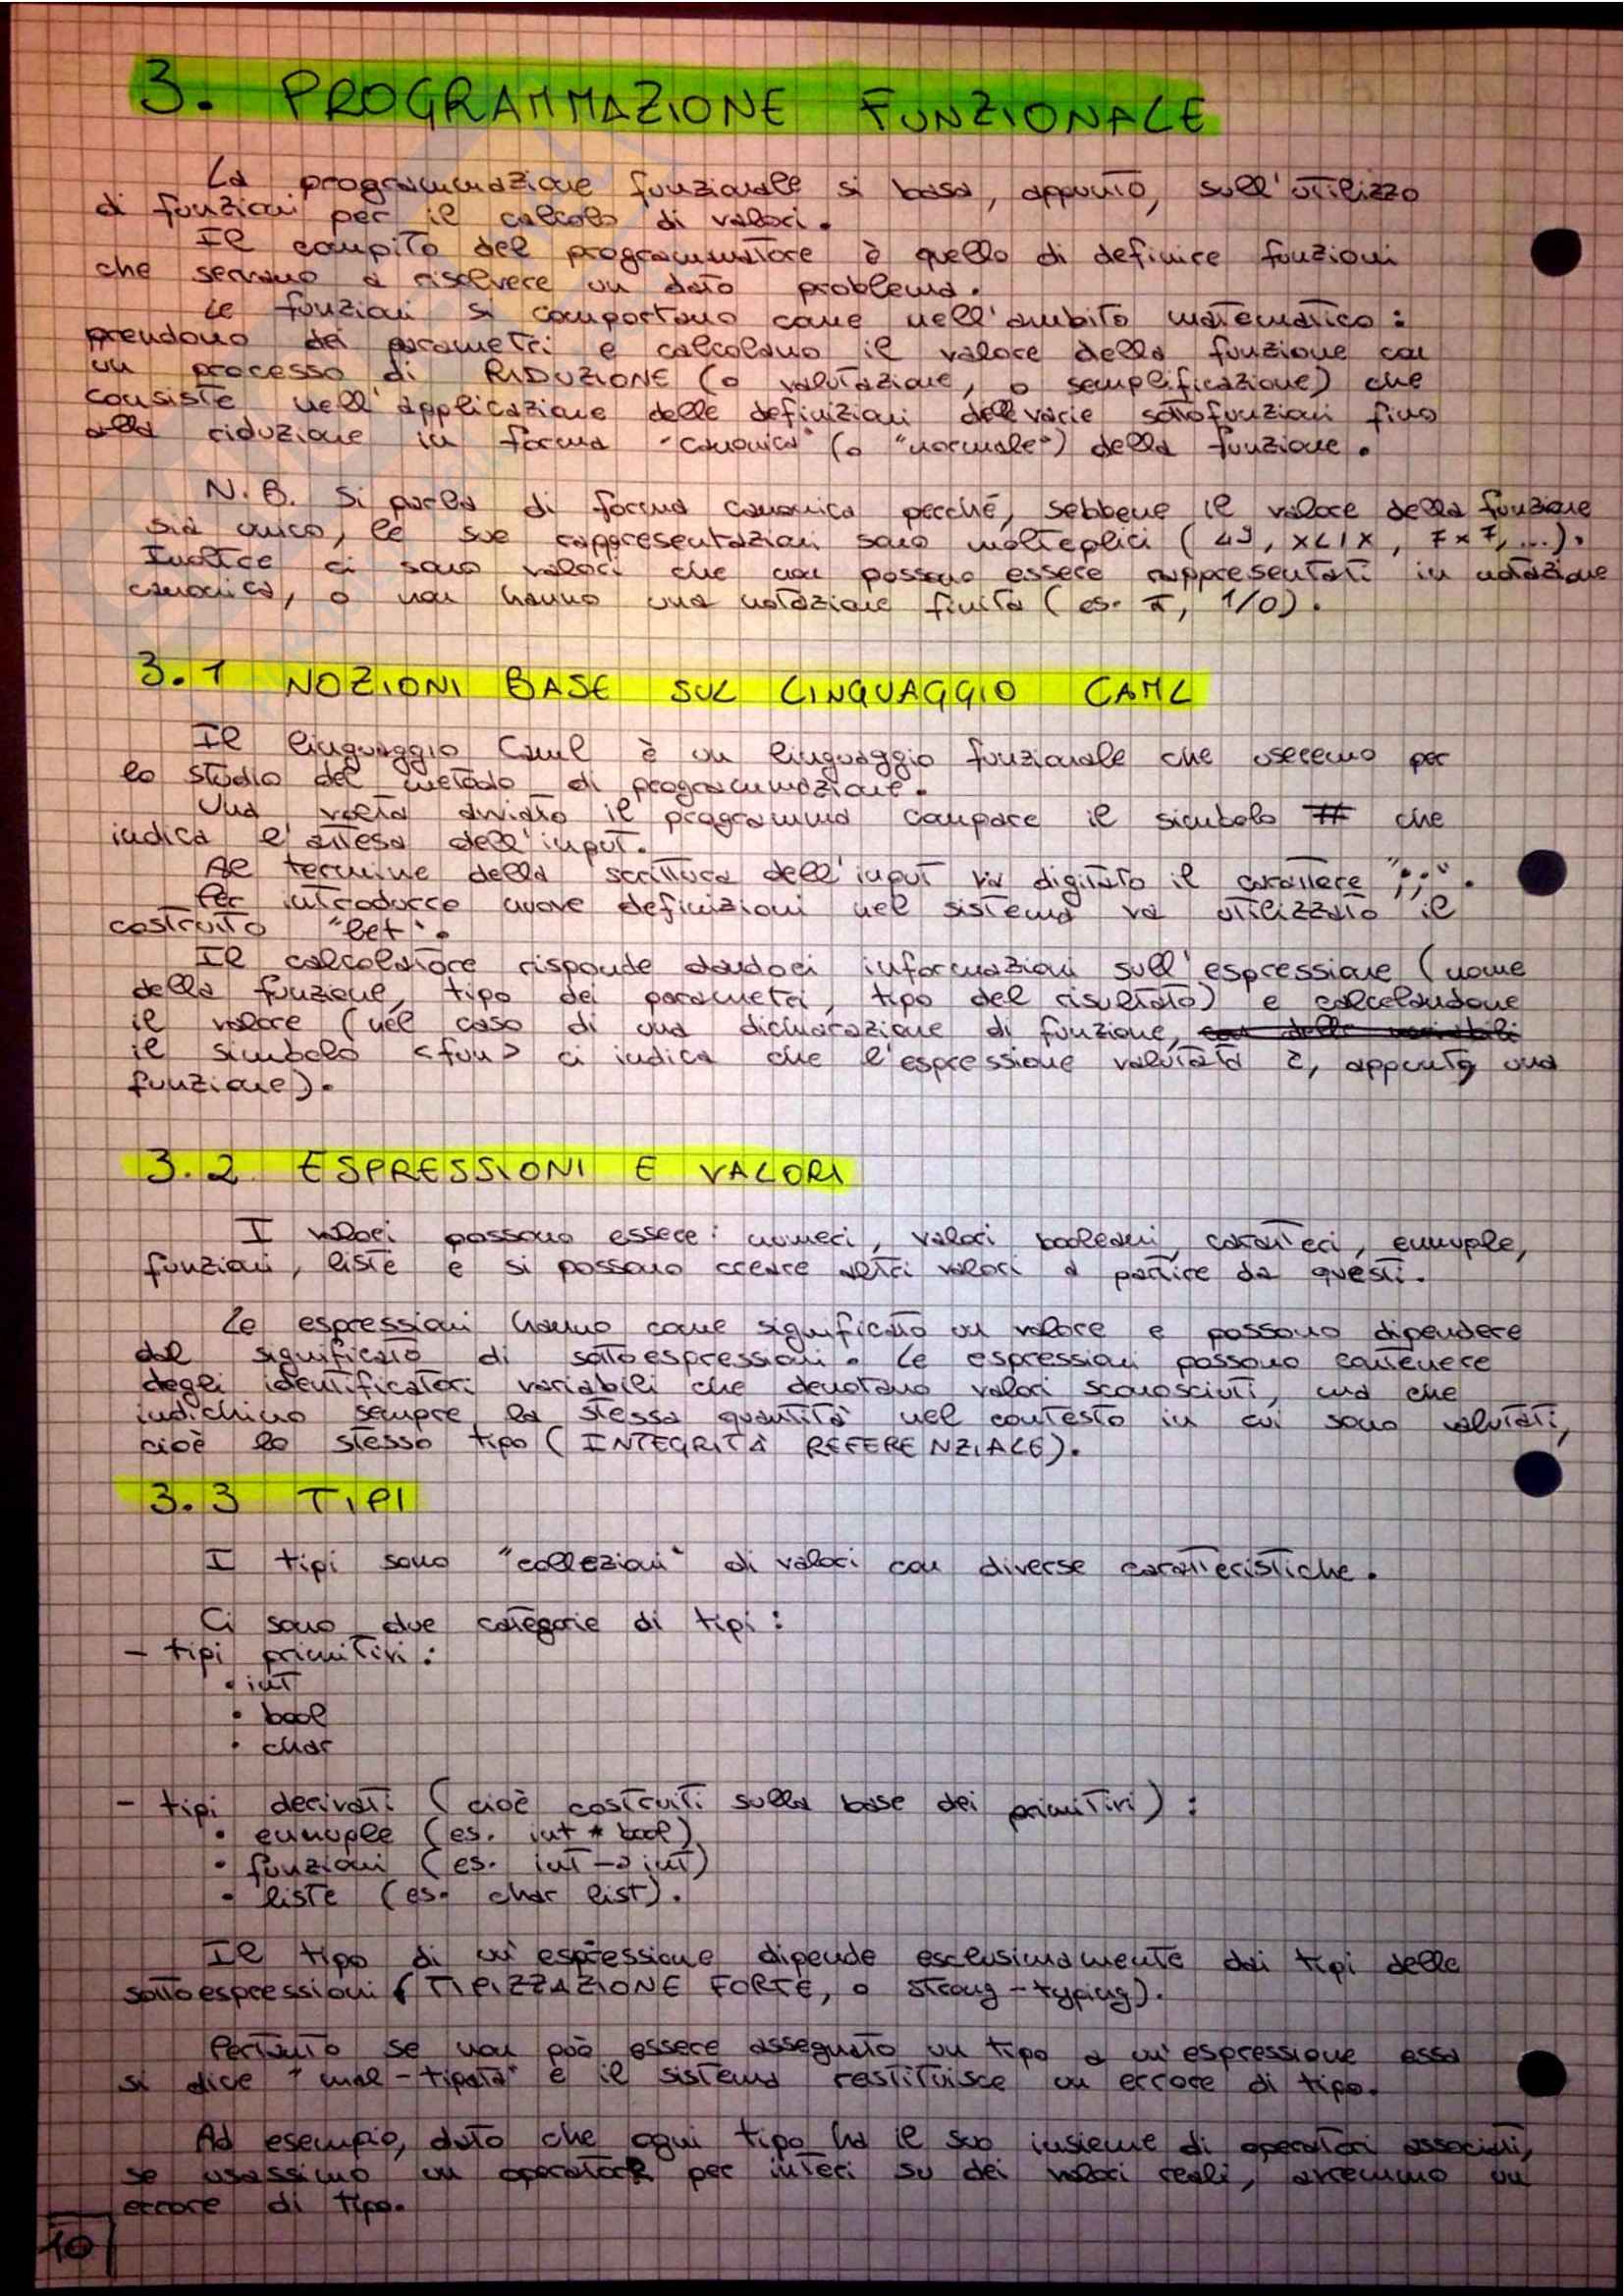 3. PROGRAMMAZIONE FUNZIONALE
La programmazione funzionale si basa, appunto, sull'utilizzo
di funzioni per il calcolo di valori.
Il compito del programmatore è quello di definire funzioni
che servano a risolvere un dato problema.
Le funzioni si comportano come nell'ambito matematico:
prendono dei parametri e calcolano il valore della funzione con
un processo di RIDUZIONE (o valutazione, o semplificazione) che
consiste nell'applicazione delle definizioni delle varie sottofunzioni fino
alla riduzione in forma "canonica" (o "normale") della funzione.
N.B. Si parla di forma canonica perché, sebbene il valore della funzione
sia unico, le sue rappresentazioni sono molteplici (49, XLIX, 7x7,...).
Inoltre ci sono valori che non possono essere rappresentati in notazione
canonica, o non hanno una notazione finita (es. π, 1/0).
3.1 NOZIONI BASE SUL LINGUAGGIO CAML
Il linguaggio Caml è un linguaggio funzionale che useremo per
lo studio del metodo di programmazione.
Una volta avviato il programma compare il simbolo # che
indica l'attesa dell'input.
Al termine della scrittura dell'input va digitato il carattere ";;".
Per introdurre nuove definizioni nel sistema va utilizzato il
costruito "let".
Il calcolatore risponde dandoci informazioni sull'espressione (nome
della funzione, tipo dei parametri, tipo del risultato) e calcolandone
il valore (nel caso di una dichiarazione di funzione,
il simbolo <fun> ci indica che l'espressione valutata è, appunto, una
funzione).
3.2 ESPRESSIONI E VALORI
I valori possono essere: numeri, valori booleani, caratteri, ennuple,
funzioni, liste e si possono creare altri valori a partire da questi.
Le espressioni hanno come significato un valore e possono dipendere
dal significato di sottoespressioni. Le espressioni possono contenere
degli identificatori variabili che denotano valori sconosciuti, ma che
indichino sempre la stessa quantità nel contesto in cui sono valutati,
cioè lo stesso tipo (INTEGRITÀ REFERENZIALE).
3.3 TIPI
I tipi sono "collezioni" di valori con diverse caratteristiche.
Ci sono due categorie di tipi:
- tipi primitivi:
• int
• bool
• char
- tipi derivati (cioè costruiti sulla base dei primitivi):
• ennuple (es. int * bool)
• funzioni (es. int -> int)
• liste (es. char list).
Il tipo di un'espressione dipende esclusivamente dai tipi delle
sottoespressioni (TIPIZZAZIONE FORTE, o strong-typing).
Pertanto se non può essere assegnato un tipo a un'espressione essa
si dice "mal-tipata" e il sistema restituisce un errore di tipo.
Ad esempio, dato che ogni tipo ha il suo insieme di operatori associati,
se usassimo un operatore per interi su dei valori reali, avremmo un
errore di tipo.
10